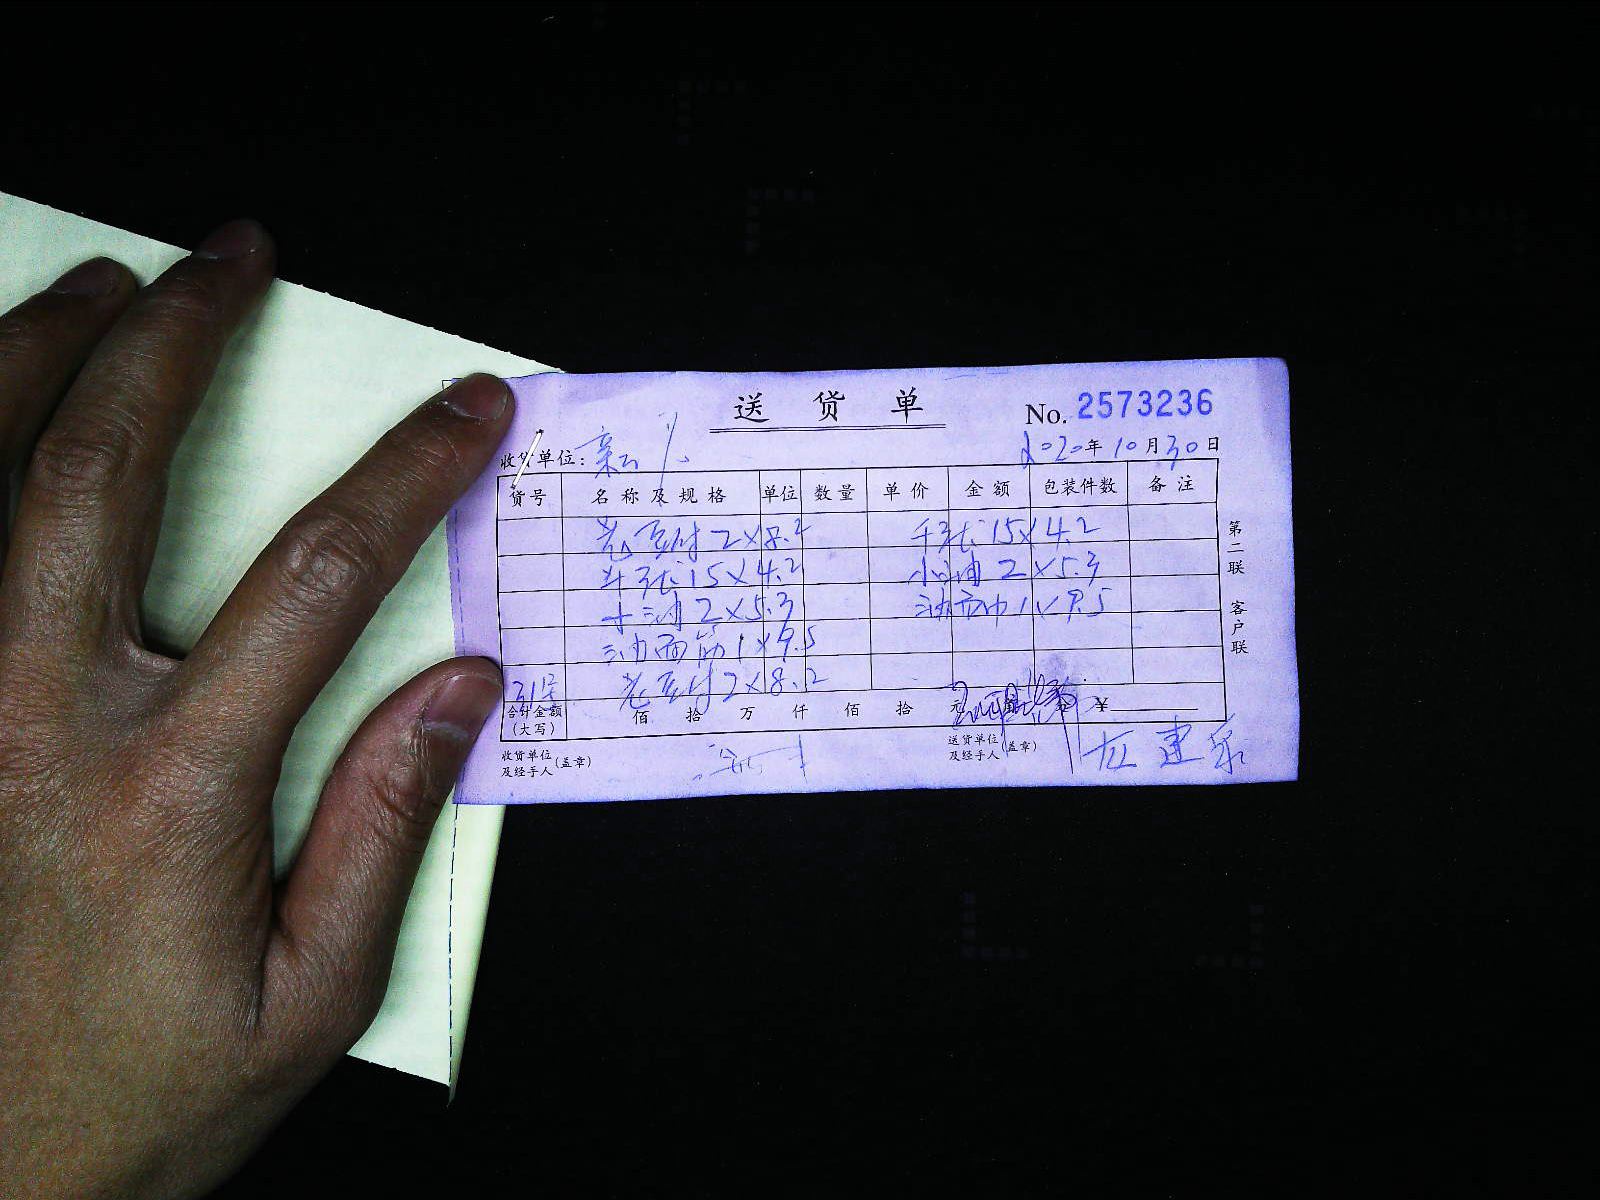 送 货 单
No. 2573236
收货单位:
2020年10月30日
货号 名称及规格 单位 数量 单价 金额 包装件数 备注
老豆付 2×8.2 千张 15×4.2
千张 15×4.2 小油 2×5.3
小油 2×5.3 油面巾 1×9.5
油面筋 1×9.5
31号 老豆付 2×8.2
合计金额(大写) 佰 拾 万 仟 佰 拾 元 ¥
收货单位及经手人(盖章) 送货单位及经手人(盖章)
第二联 客户联